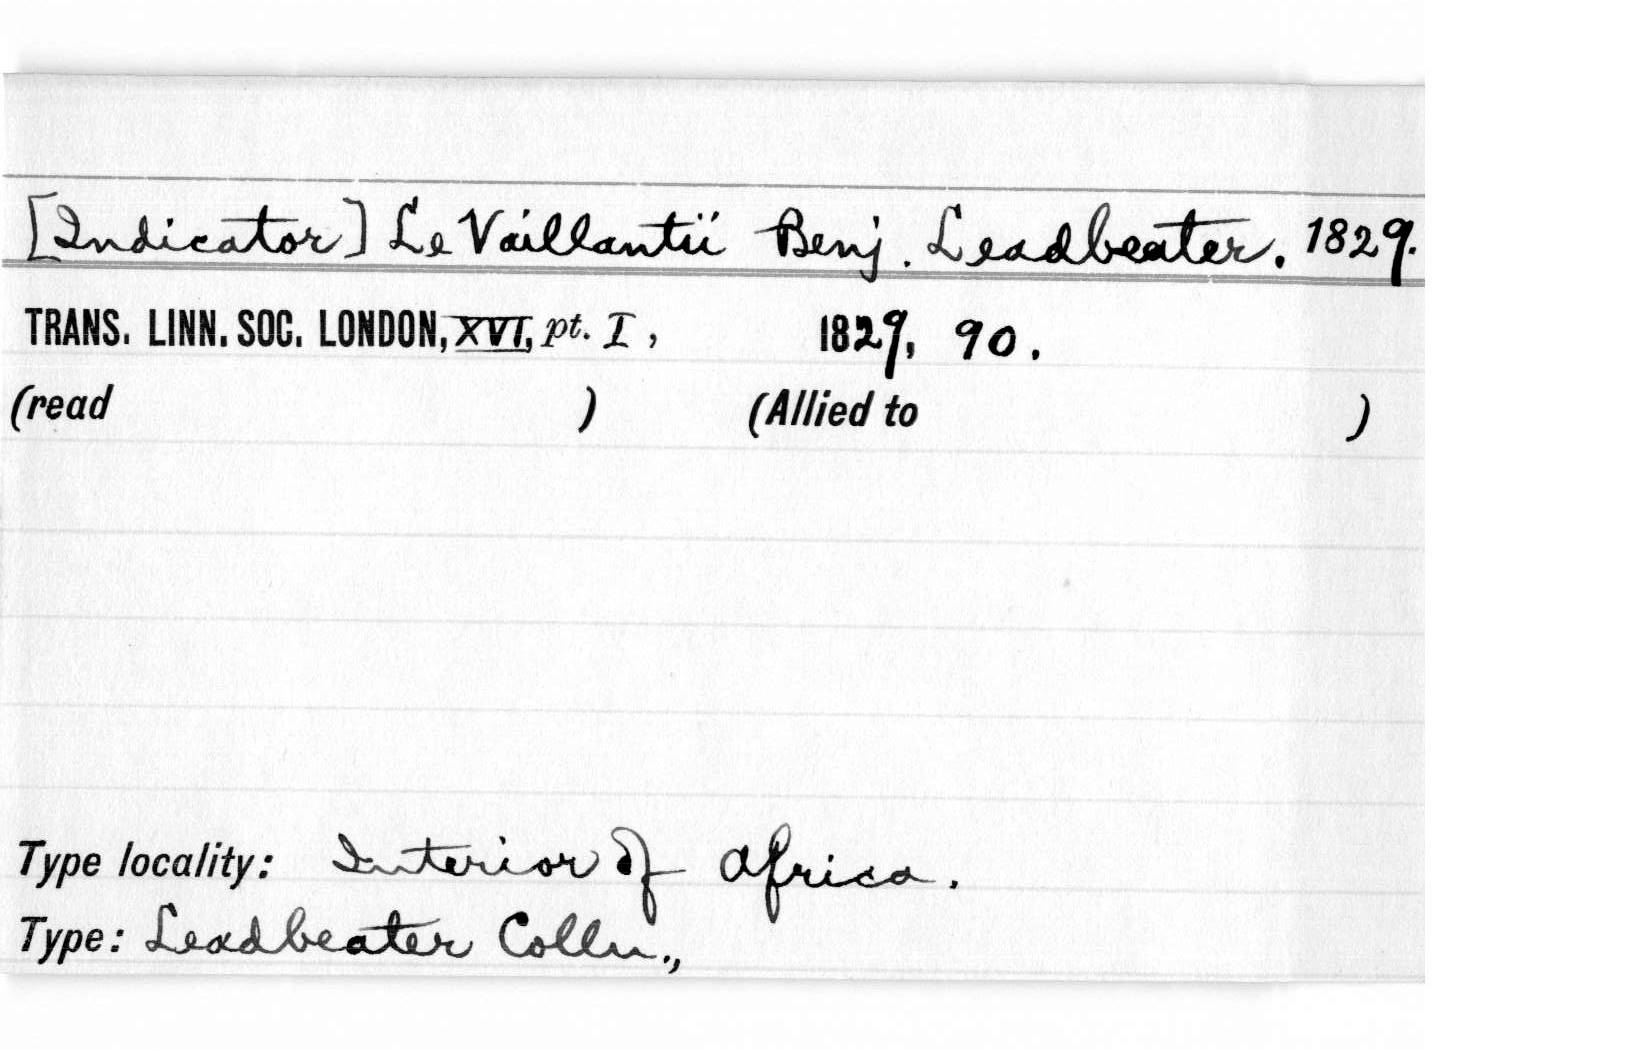 [Indicator] Le Vaillantii Benj. Leadbeater. 1829.
TRANS. LINN. SOC. LONDON, XVI, pt. I, 1829, 90.
(read ) (Allied to )
Type locality: Interior of Africa.
Type: Leadbeater Colln.,